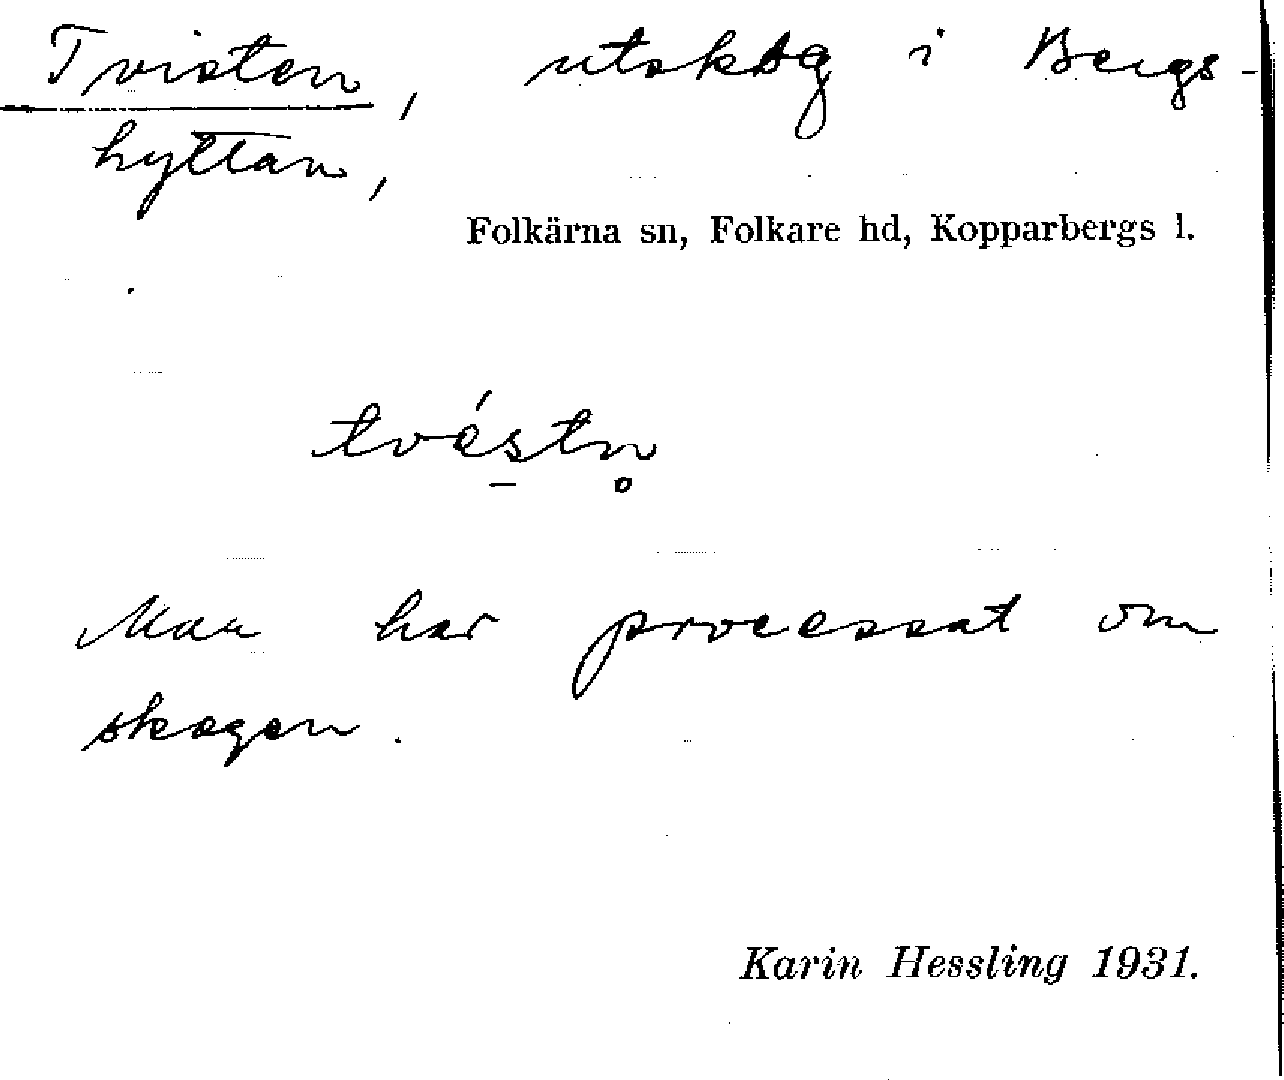 Tvisten, utskog i Bergs-
hyttan,
Folkärna sn, Folkare hd, Kopparbergs l.
tvés̲tn̥
Man har processat om
skogen.
Karin Hessling 1931.